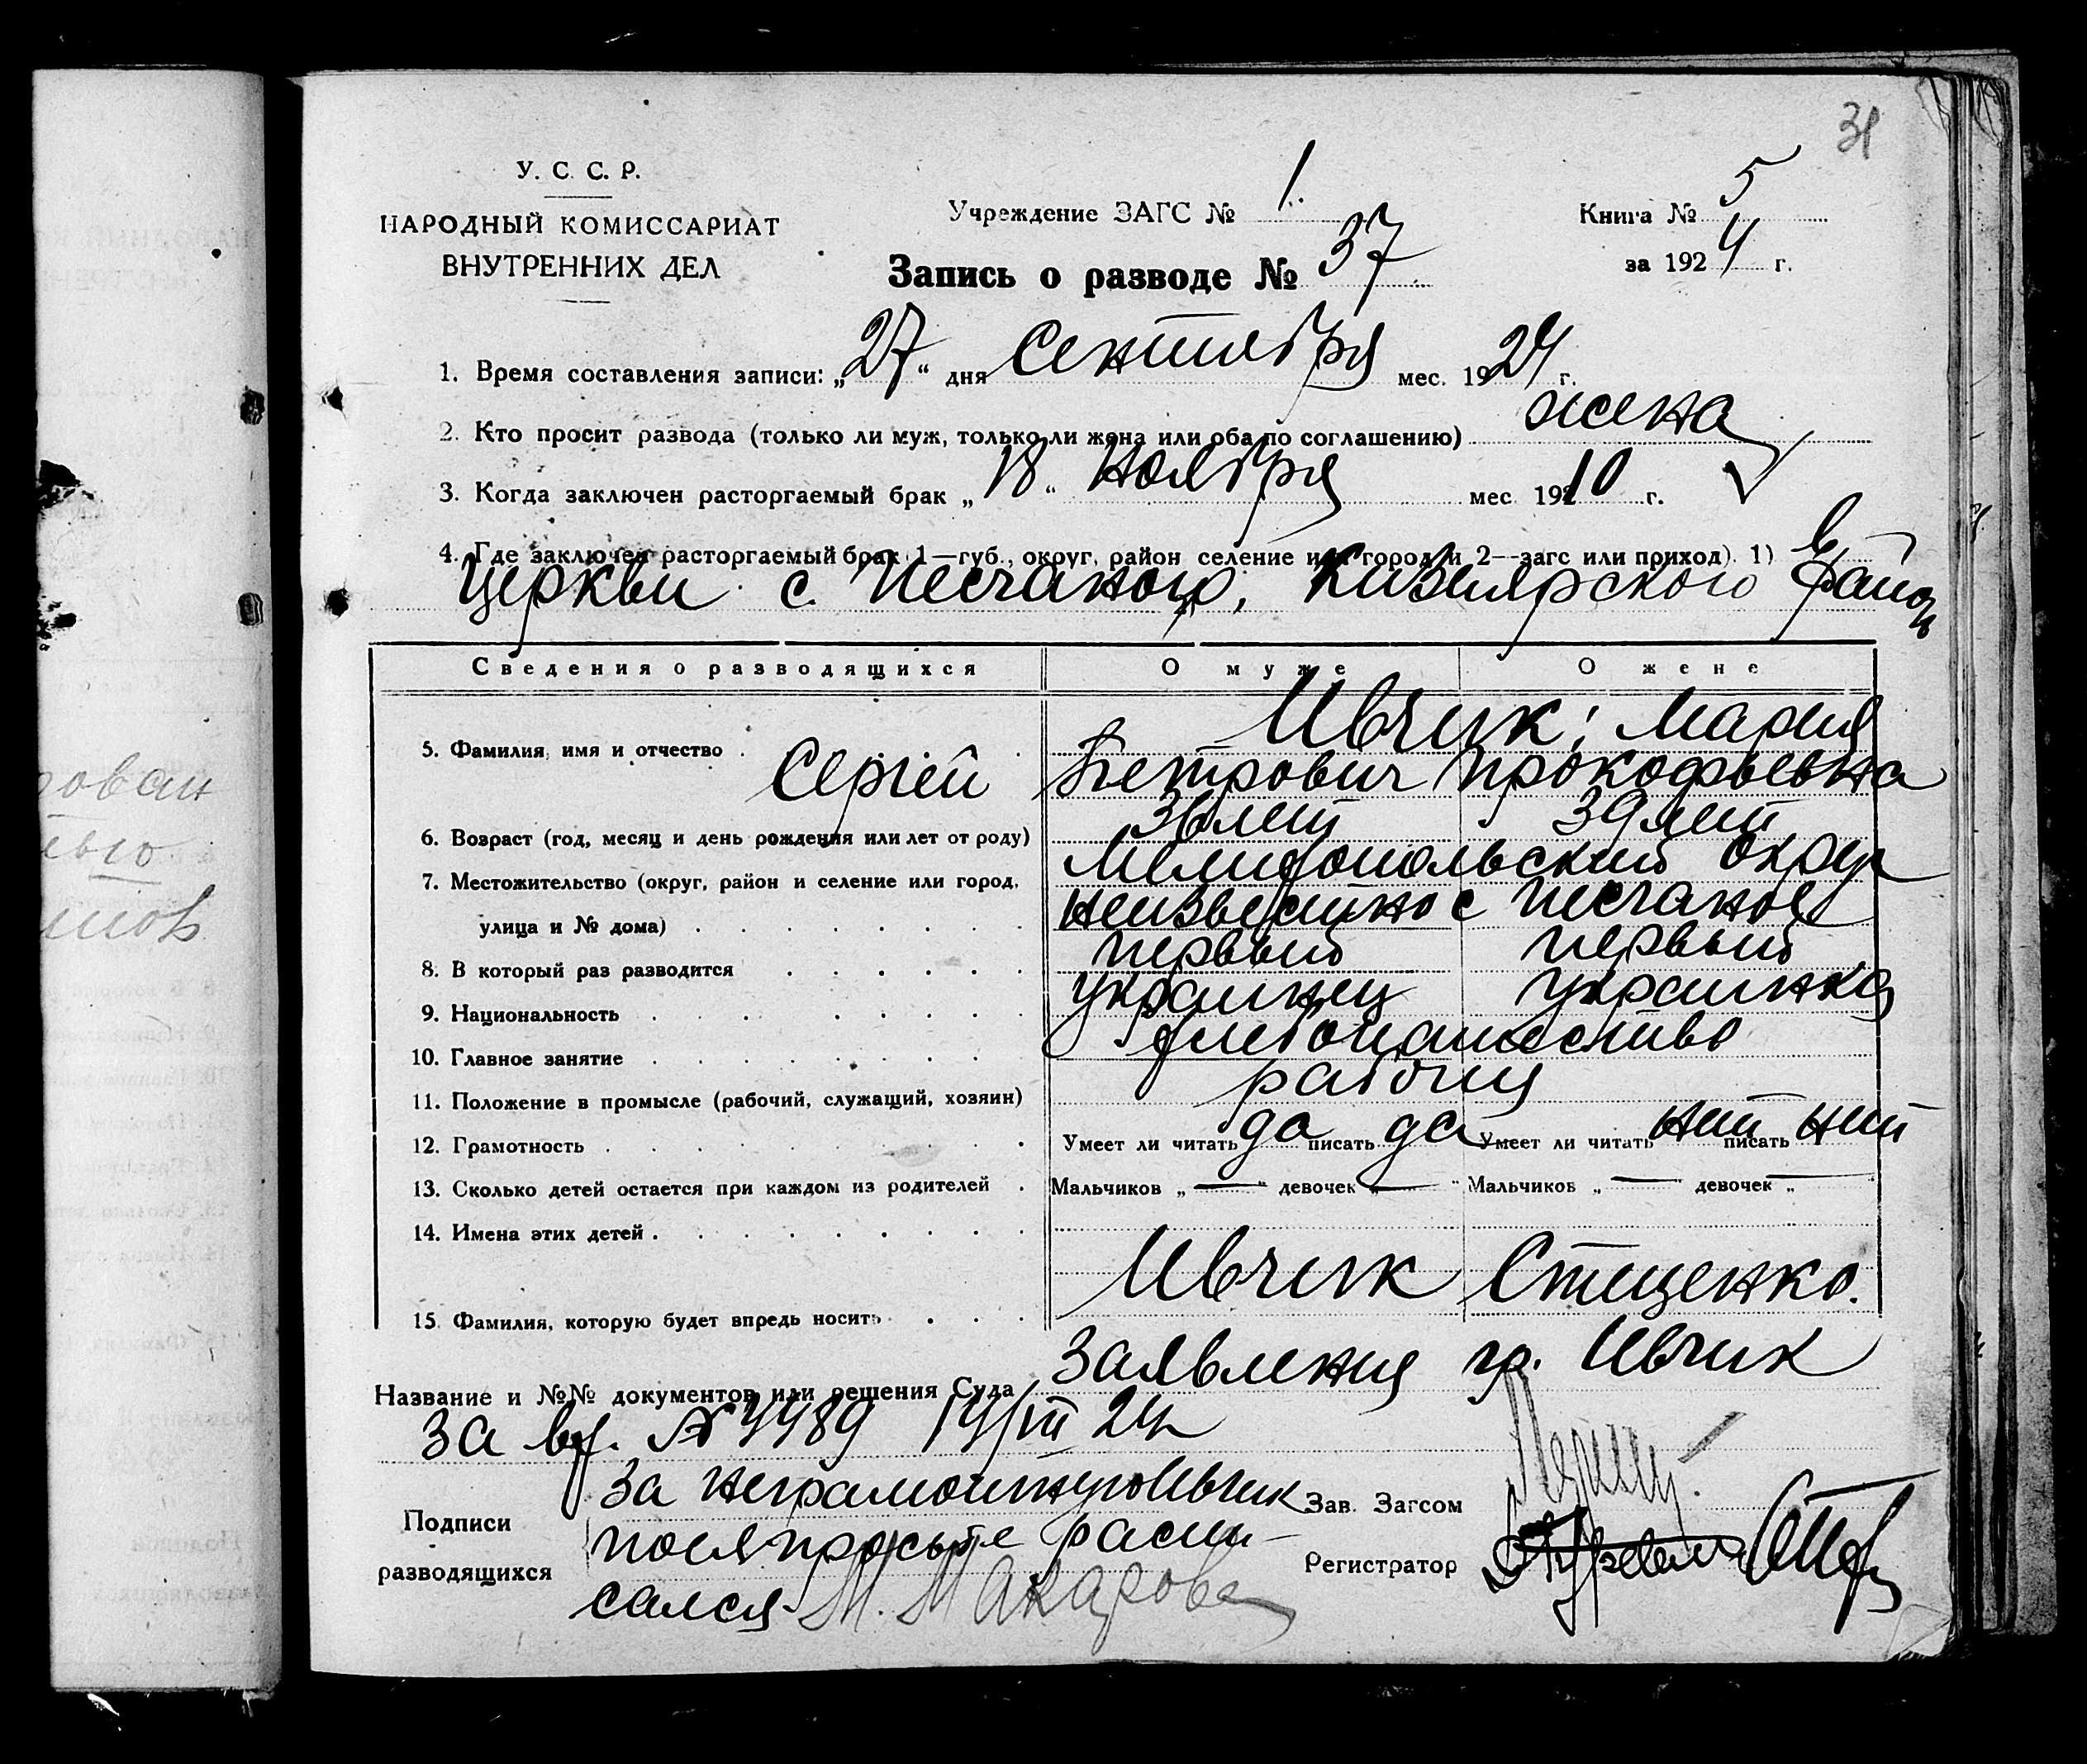 31
У. С. С. Р.
НАРОДНЫЙ КОМИССАРИАТ
ВНУТРЕННИХ ДЕЛ
Учреждение ЗАГС № 1.
Книга № 5
за 1924 г.
Запись о разводе № 37
1. Время составления записи: „27“ дня Сентября мес. 1924 г.
2. Кто просит развода (только ли муж, только ли жена или оба по соглашению) жена
3. Когда заключен расторгаемый брак „18“ Ноября мес 1910 г.
4. Где заключен расторгаемый брак (1—губ., округ, район селение или город и 2—загс или приход). 1) в
Церкви с. Песчаного, Кизиярского район
Сведения о разводящихся О муже О жене
5. Фамилия, имя и отчество Ивчик; Мария
Сергей Петрович Прокофьевна
6. Возраст (год, месяц и день рождения или лет от роду) 36 лет 39 лет
7. Местожительство (округ, район и селение или город, Мелитопольский округ
улица и № дома) неизвестно с Песчаное
8. В который раз разводится первый первый
9. Национальность украинец украинка
10. Главное занятие хлебопашество
11. Положение в промысле (рабочий, служащий, хозяин)
12. Грамотность Умеет ли читать да писать да Умеет ли читать нит писать нит
13. Сколько детей остается при каждом из родителей Мальчиков „—“ девочек „—“ Мальчиков „—“ девочек „—
14. Имена этих детей
15. Фамилия, которую будет впредь носить Ивчик Стиценко.
Название и №№ документов или решения Суда Заявления гр. Ивчик
за вх. № 4489 14/VII 24
Подписи
разводящихся
за неграмотную Ивчик
по ея просьбе распи-
сался М. Макарова
Зав. Загсом
Регистратор
рован